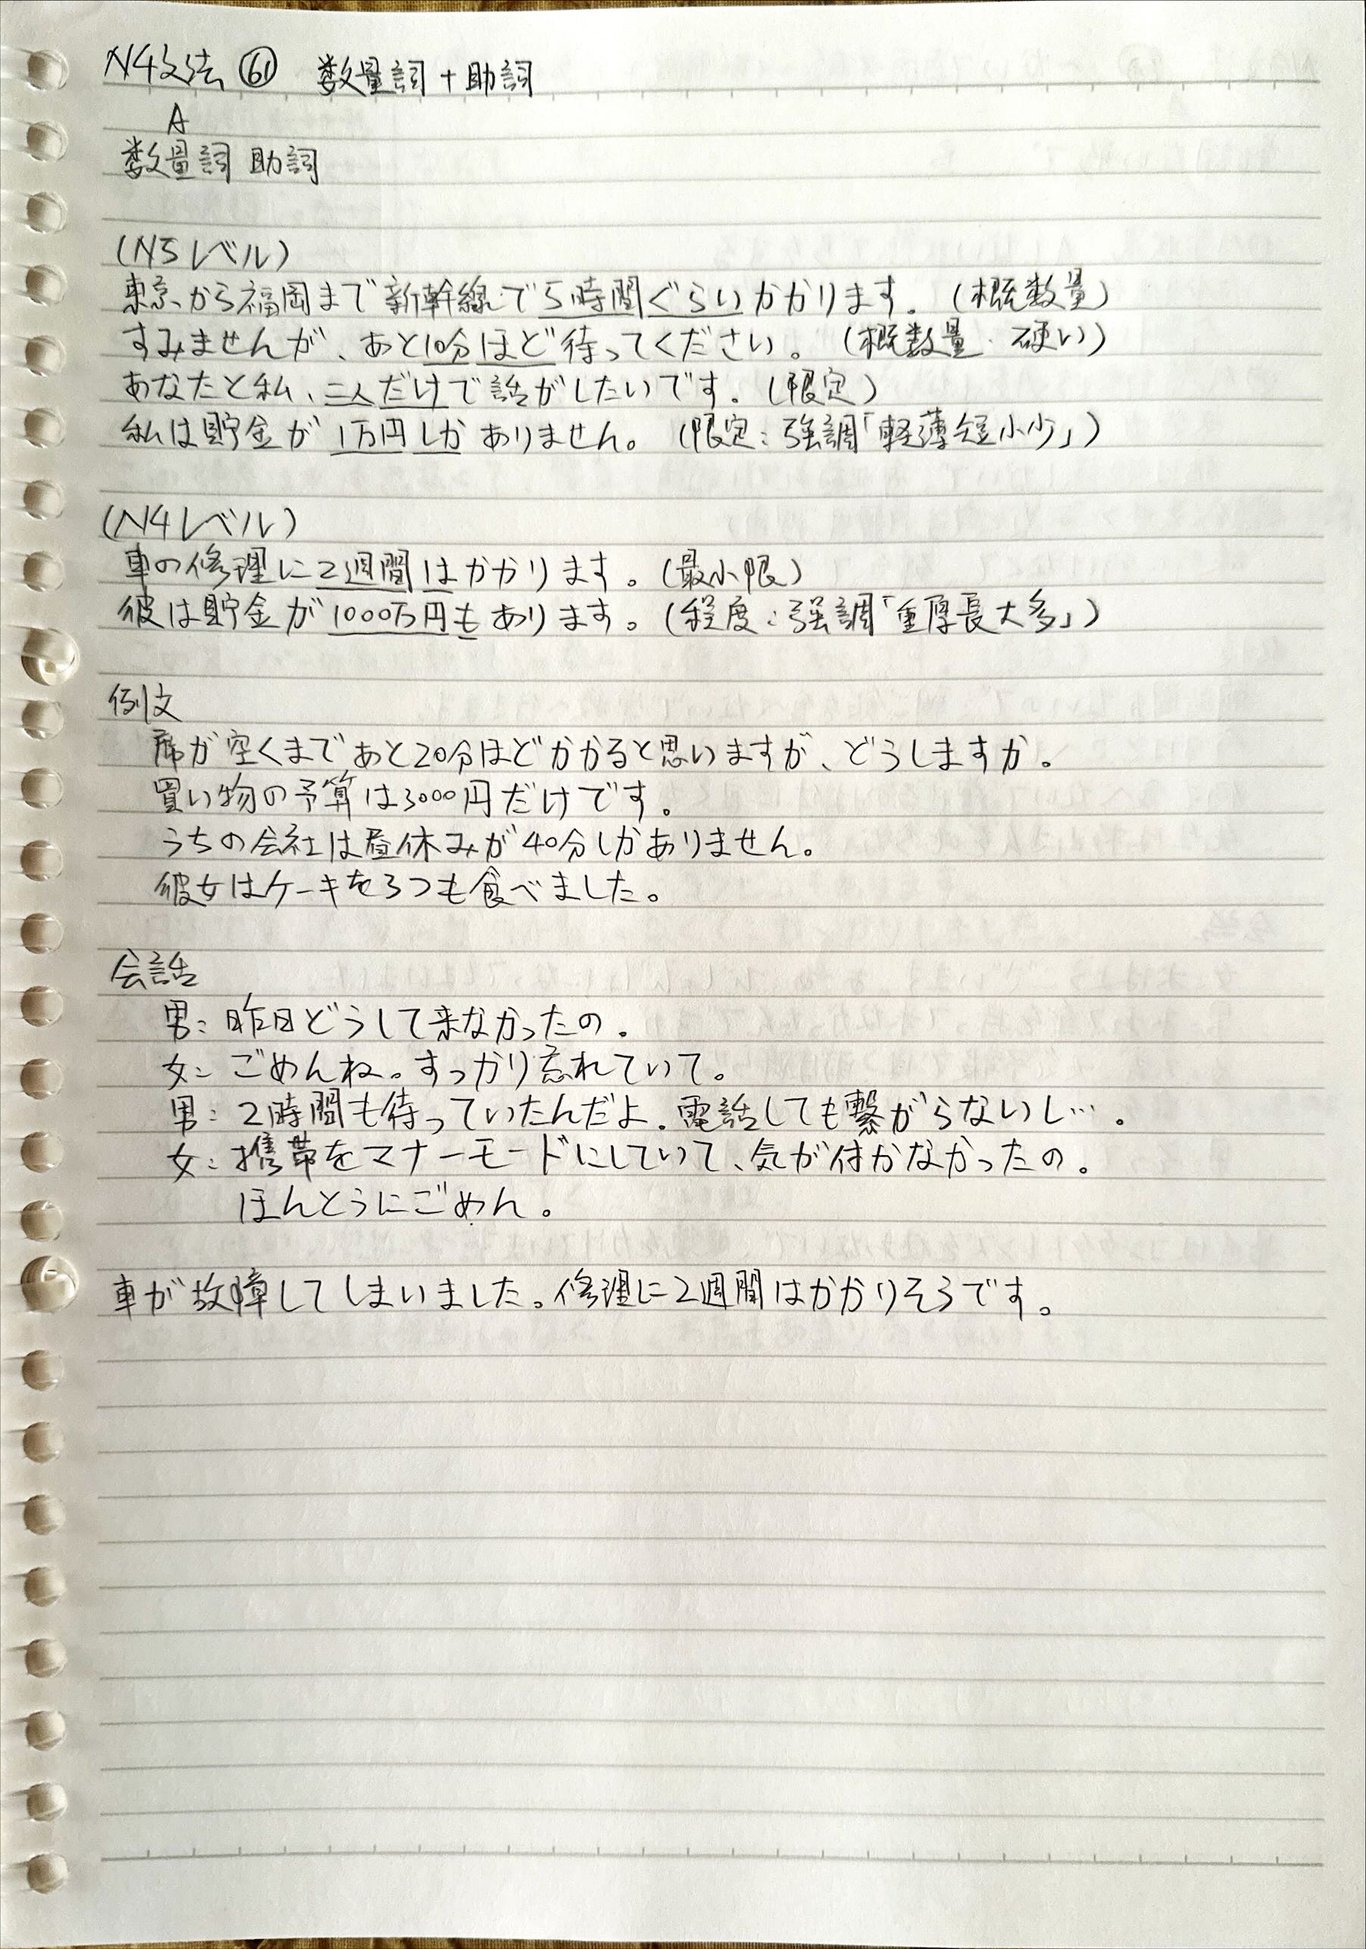 N4文法 ㉛ 数量詞+助詞
A
数量詞 助詞
(N5レベル)
東京から福岡まで新幹線で5時間ぐらいかかります。(概数量)
すみませんが、あと10分ほど待ってください。(概数量・硬い)
あなたと私、二人だけで話がしたいです。(限定)
私は貯金が1万円しかありません。(限定:強調「軽薄短小少」)
(N4レベル)
車の修理に2週間はかかります。(最小限)
彼は貯金が1000万円もあります。(程度:強調「重厚長大多」)
例文
席が空くまであと20分ほどかかると思いますが、どうしますか。
買い物の予算は3000円だけです。
うちの会社は昼休みが40分しかありません。
彼女はケーキを3つも食べました。
会話
男:昨日どうして来なかったの。
女:ごめんね。すっかり忘れていて。
男:2時間も待っていたんだよ。電話しても繋がらないし…。
女:携帯をマナーモードにしていて、気が付かなかったの。
ほんとうにごめん。
車が故障してしまいました。修理に2週間はかかりそうです。